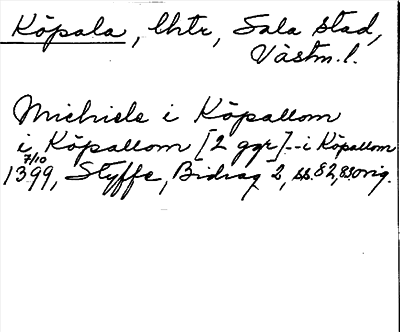 Köpala, lhtr, Sala stad,
Västm. l.
Michiele i Köpallom
i Köpallom [2 ggr] -- i Köpallom
7/10
1399, Styffe, Bidrag 2, ss. 82, 83 orig.